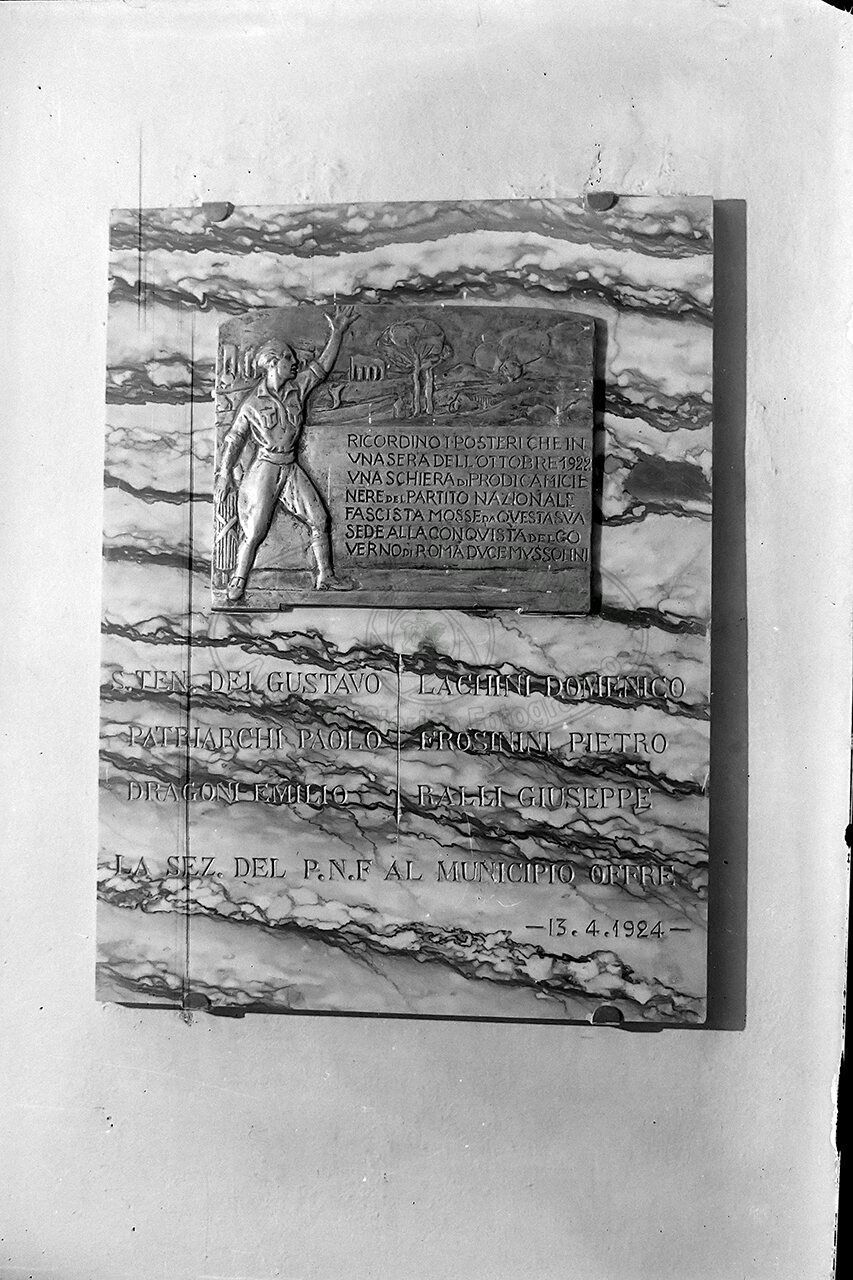 RICORDINO I POSTERI CHE IN
VNA SERA DELL'OTTOBRE 1922
VNA SCHIERA DI PRODI CAMICIE
NERE DEL PARTITO NAZIONALE
FASCISTA MOSSE DA QVESTA SVA
SEDE ALLA CONQVISTA DEL GO
VERNO DI ROMA DVCE MVSSOLINI
S. TEN. DEI GUSTAVO
PATRIARCHI PAOLO
DRAGONI EMILIO
LACHINI DOMENICO
FROSININI PIETRO
RALLI GIUSEPPE
LA SEZ. DEL P.N.F AL MUNICIPIO OFFRE
—13.4.1924—